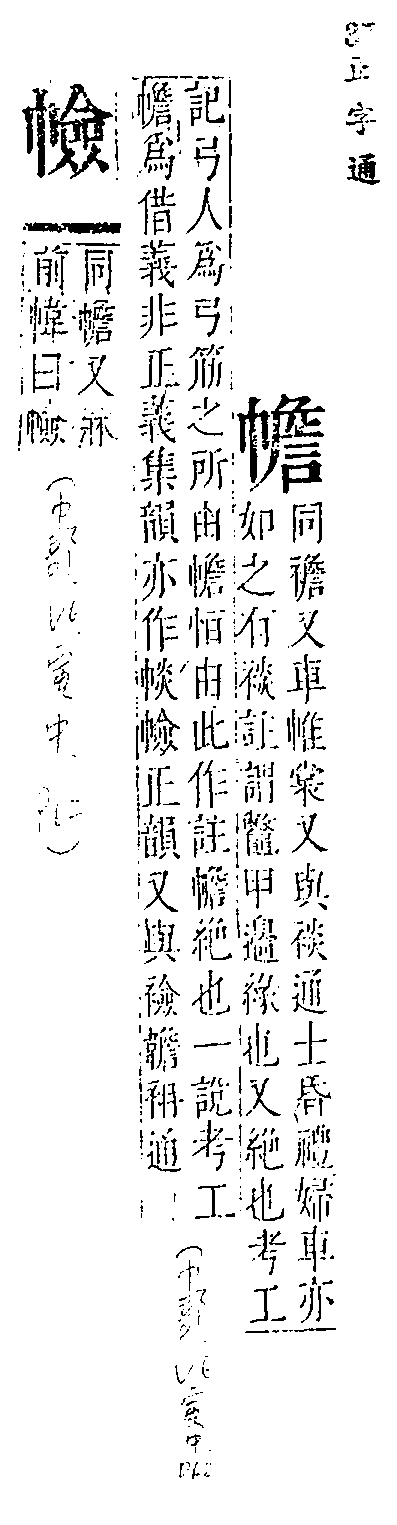 正字通
幨
同襜又車帷裳又與裧通士昏禮婦車亦
如之有裧註謂鼈甲邊緣也又絶也考工
記弓人爲弓筋之所由幨恒由此作註幨絶也一說考工
幨爲借義非正義集韻亦作㡘㡨正韻又與襝韂袡通
㡨
同幨又牀
前幃曰㡨